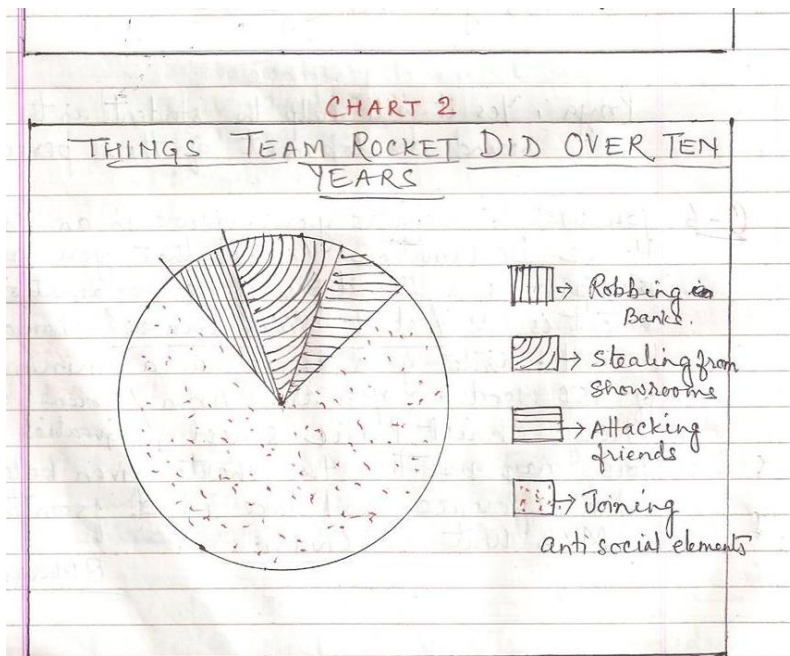 CHART 2
THINGS TEAM ROCKET DID OVER TEN
YEARS
Robbing in
Banks.
Stealing from
Showrooms
Attacking
friends
Joining
anti social elements